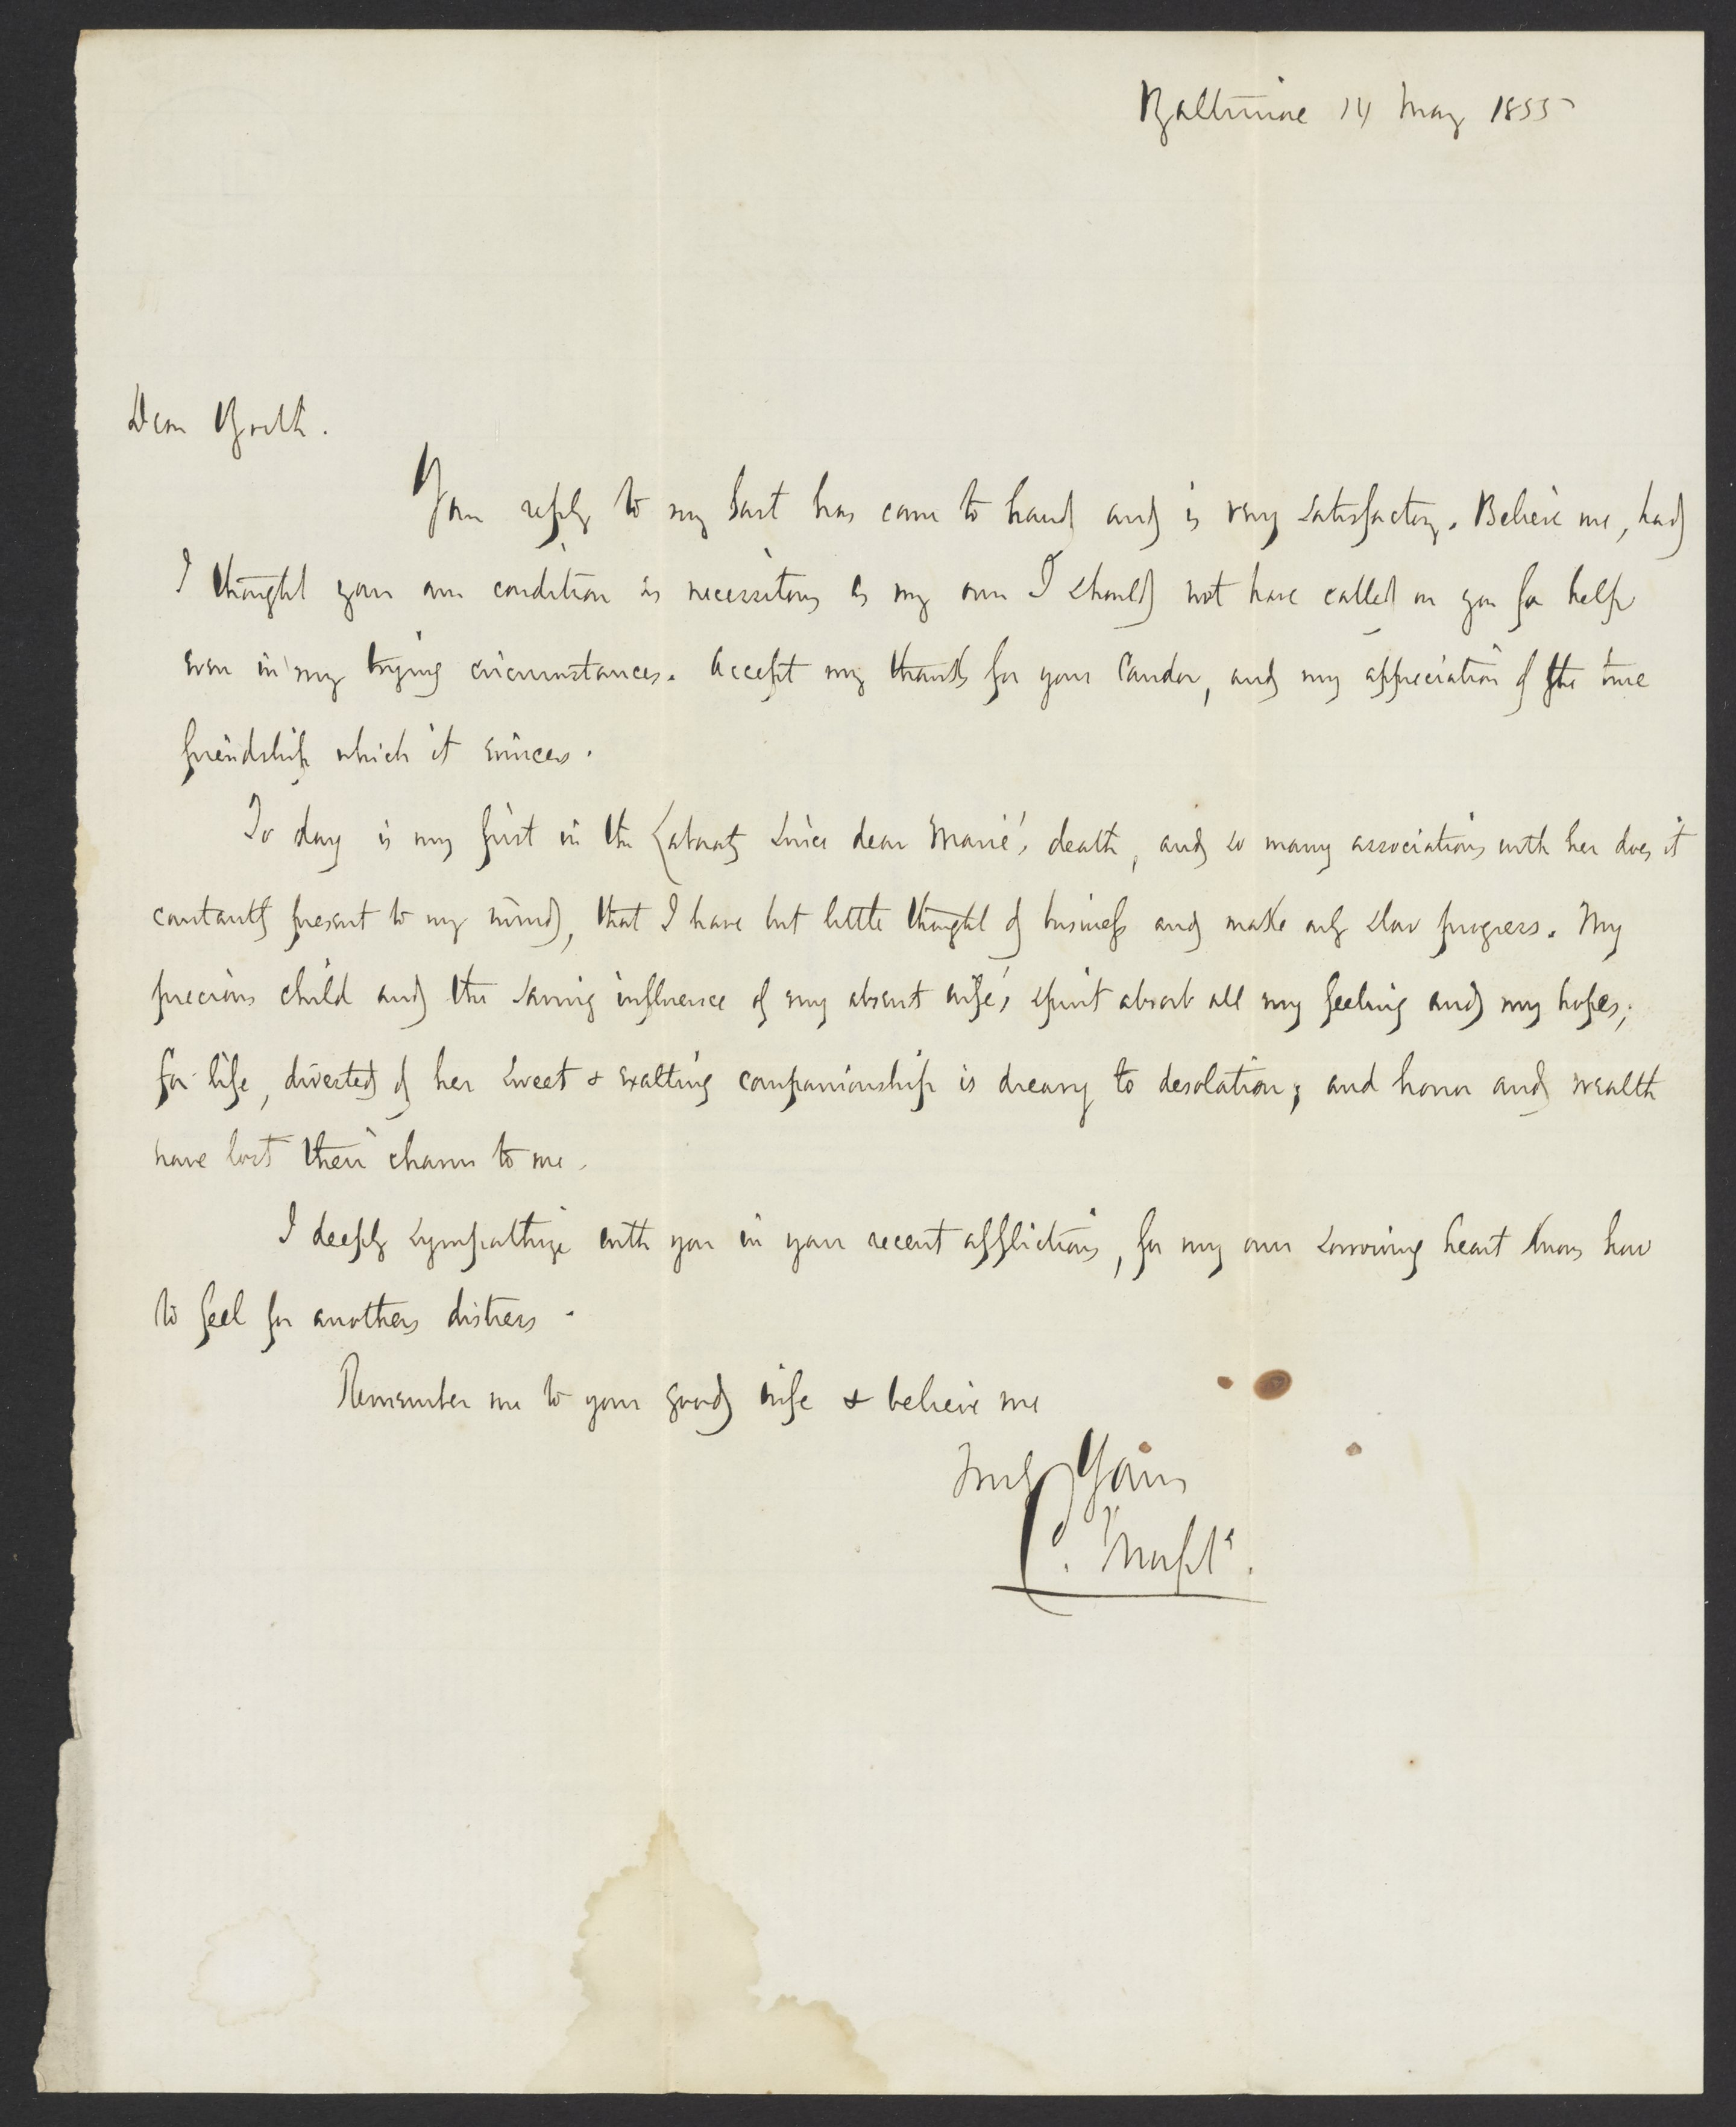 Baltimore 14 May 1855
Dear Booth.
Your reply to my last has come to hand and is very satisfactory. Believe me, had
I thought your own condition as necessitous as my own I should not have called on you for help
even in my trying circumstances. Accept my thanks for your candor, and my appreciation of the true
friendship which it evinces.
To day is my first in the Laboraty since dear Marie's death, and so many associations with her does it
constantly present to my mind, that I have but little thought of business and make only slow progress. My
precious child and the saving influence of my absent wife's spirit absorb all my feeling and my hopes;
for life, divested of her sweet & exalting companionship is dreary to desolation; and honor and wealth
have lost their charm to me.
I deeply sympathize with you in your recent afflictions, for my own sorrowing heart knows how
to feel for anothers distress.
Remember me to your good wife & believe me
Truly Yours
C. Morfit.